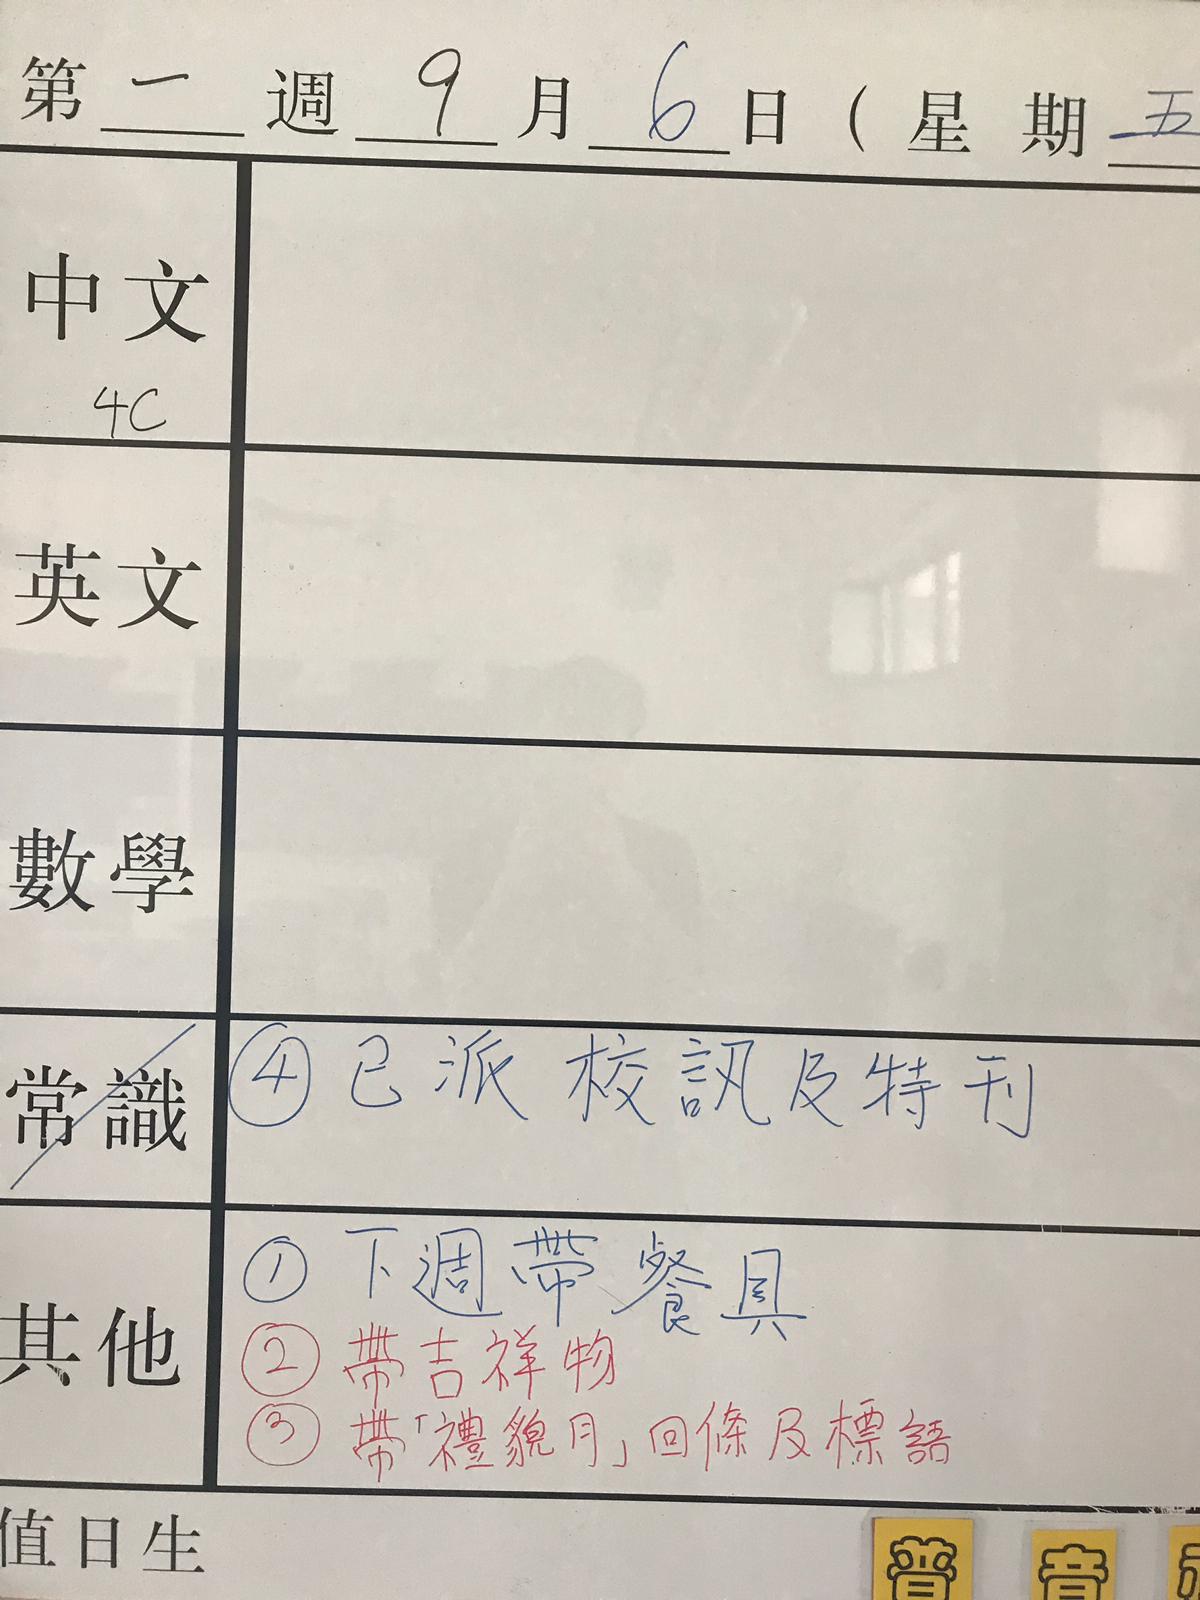 第一週9月6日(星期五
中文
4C
英文
數學
常識
④已派校訊及特刊
其他
①下週帶餐具
②帶吉祥物
③帶「禮貌月」回條及標語
值日生
普 音